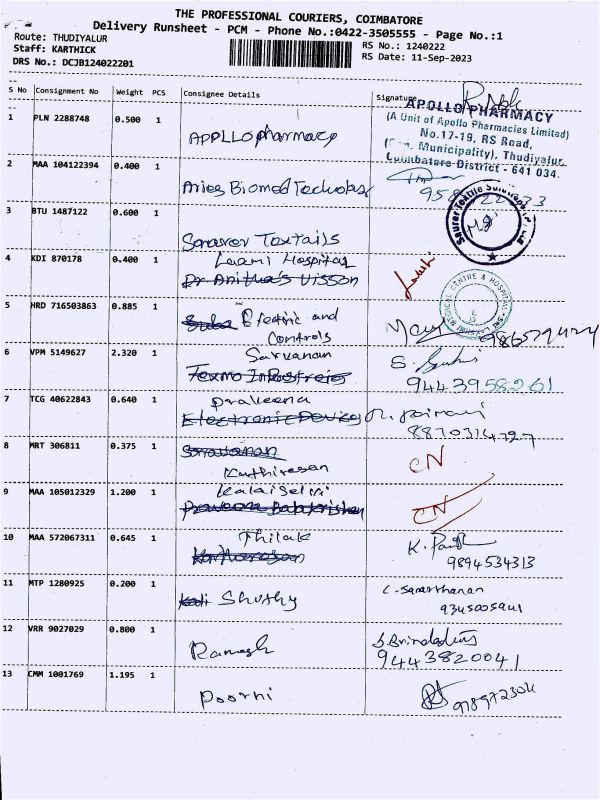 THE PROFESSIONAL COURIERS, COIMBATORE
Delivery Runsheet - PCM - Phone No.:0422-3505555 - Page No.:1
Route: THUDIYALUR
RS No.: 1240222
Staff: KARTHICK
RS Date: 11-Sep-2023
DRS No.: DCJB124022201
S No Consignment No Weight PCS Consignee Details Signature
1 PLN 2288748 0.500 1 APPLLO pharmacy
APOLLO PHARMACY
(A Unit of Apollo Pharmacies Limited)
No.17-19, RS Road,
Municipality), Thudiyalur,
Coimbatore District - 641 034.
2 MAA 104122394 0.400 1 Aries Biomed
3 BTU 1487122 0.600 1 Saurer Textails
Saurer Textile
4 KDI 870178 0.400 1 Laxmi Hospital
Dr Anitha's
MEDICAL CENTRE & HOSPITAL
5 HRD 716503863 0.885 1 Electric and
Controls
6 VPM 5149627 2.320 1 Sarvanan
9443958261
7 TCG 40622843 0.640 1 Praveena
Electronic Devices
8870314727
8 MRT 306811 0.375 1 Saravanan
Kathiresan
CN
9 MAA 105012329 1.200 1 Kalaiselvi
Praveena Balakrishnan
CN
10 MAA 572067311 0.645 1 Thilak
9894534313
11 MTP 1280925 0.200 1 Shuthy
12 VRR 9027029 0.800 1 Ramesh
9443820041
13 CMM 1001769 1.195 1 Poorni